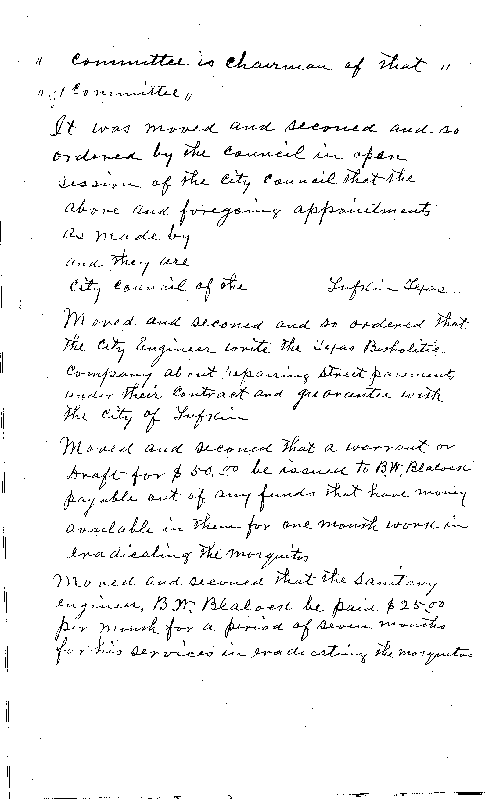 " Committee is Chairman of that "
" of Committee "
It was moved and seconed and so
ordered by the Council in open
session of the City Council that the
above and foregoing appointments
as made by
and they are
City Council of the Lufkin Texas.
Moved and seconed and so ordered that
the City Engineer write the Texas Bitholitic
Company about repairing street pavement
under their Contract and guarantee with
the City of Lufkin
Moved and seconed that a warrant or
Draft for $50.00 be issued to B.W. Blalock
payable out of any funds that have money
available in them for one month work in
eradicating the mosquitos
Moved and seconed that the Sanitary
engineer, B.W. Blalock be paid $25.00
per month for a period of seven months
for his services in eradicating the mosquitos